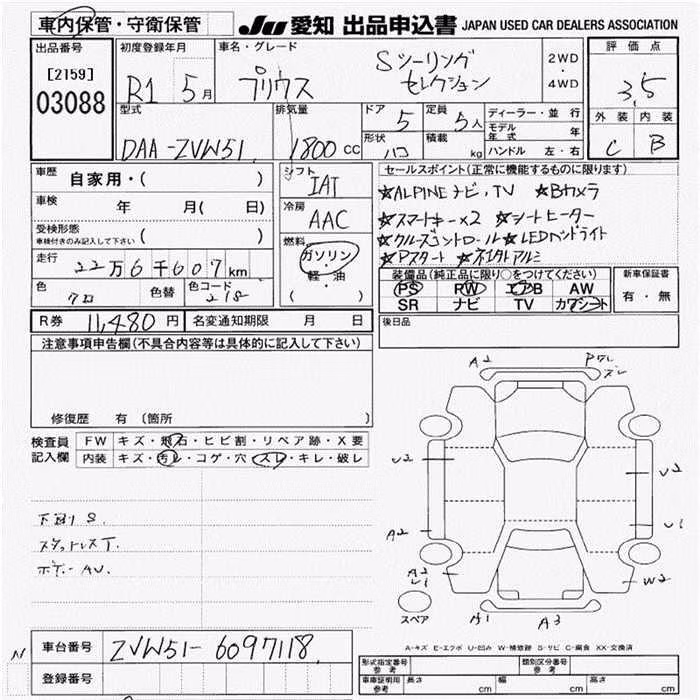 車内保管・守衛保管
JU 愛知 出品申込書 JAPAN USED CAR DEALERS ASSOCIATION
出品番号
[2159]
03088
初度登録年月
R1 5月
車名・グレード
プリウス Sツーリング
セレクション
2WD
・
4WD
評価点
3.5
外装 内装
C B
型式
DAA-ZVW51
排気量
1800 cc
ドア
5
定員
5人
形状
積載
kg
ディーラー・並行
モデル年式 年
ハンドル 左・右
車歴 自家用・( )
車検 年 月( 日)
受検形態
車検付きのみ記入して下さい ( )
走行 22万6千607km
色 クロ 色替 色コード 218
シフト
IAT
冷房
AAC
燃料
ガソリン
・
軽・油
( )
セールスポイント(正常に機能するものに限ります)
★ALPINEナビ、TV ★Bカメラ
★スマートキーx2 ★シートヒーター
★クルーズコントロール ★LEDヘッドライト
★Pスタート
装備品(純正品に限り○をつけてください)
PS RW エアB AW
SR ナビ TV カワシート
新車保証書
有・無
R券 11,480円 名変通知期限 月 日
後日品
注意事項申告欄(不具合内容等は具体的に記入して下さい)
修復歴 有 (箇所
検査員
記入欄
FW キズ・飛石・ヒビ割・リペア跡・X要
内装 キズ・汚レ・コゲ・穴・スレ・キレ・破レ
下廻りS.
スタッドレスT.
ボデーAU.
A2
U2
U2
A2
U1
A2
U1
W2
A1
A3
スペア
A-キズ E-エクボ U-凹み W-補修跡 S-サビ C-腐食 XX-交換済
N
車台番号 ZVW51-6097118
登録番号
形式指定番号
参考
類別区分番号
参考
車庫証明用
参考
長さ cm 幅 cm 高さ cm